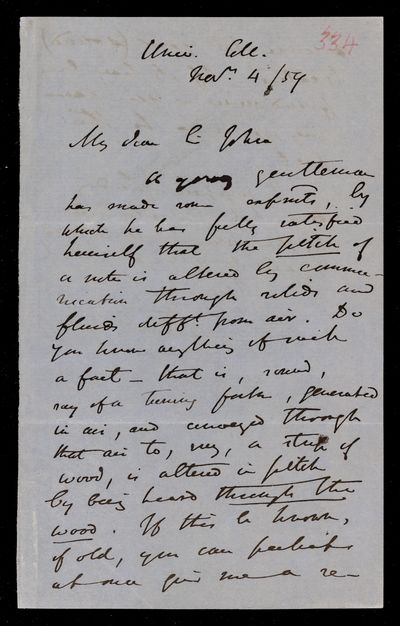 334
Univ. Coll.
Nov.r 4/59
My dear Sir John
A young gentleman
has made some expmts, by
which he has fully satisfied
himself that the pitch of
a note is altered by commu-
nication through solids and
fluids diff.t from air. Do
you know anything of such
a fact – that is, sound,
say of a tuning fork, generated
in air, and conveyed through
that air to, say, a strip of
wood, is altered in pitch
by being heard through the
wood. If this be known,
of old, you can perhaps
at once give me a re-